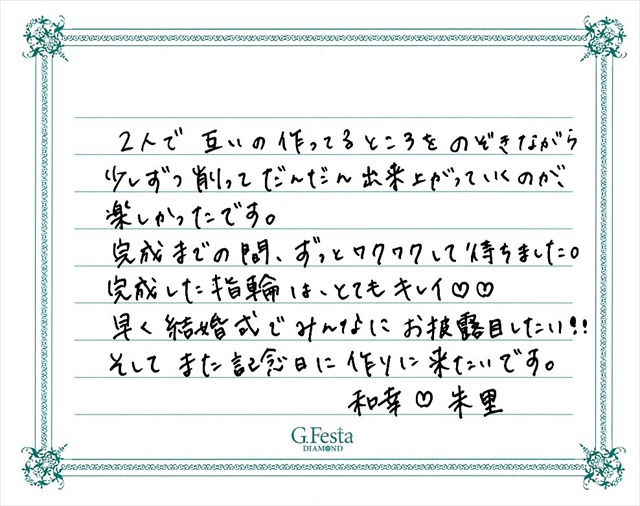 2人で 互いの作ってるところをのぞきながら
少しずつ削ってだんだん出来上がっていくのが、
楽しかったです。
完成までの間、ずっとワクワクして待ちました。
完成した指輪は、とてもキレイ♡♡
早く結婚式でみんなにお披露目したい!!
そして また記念日に作りに来たいです。
和幸 ♡ 朱里
G.Festa
DIAMOND